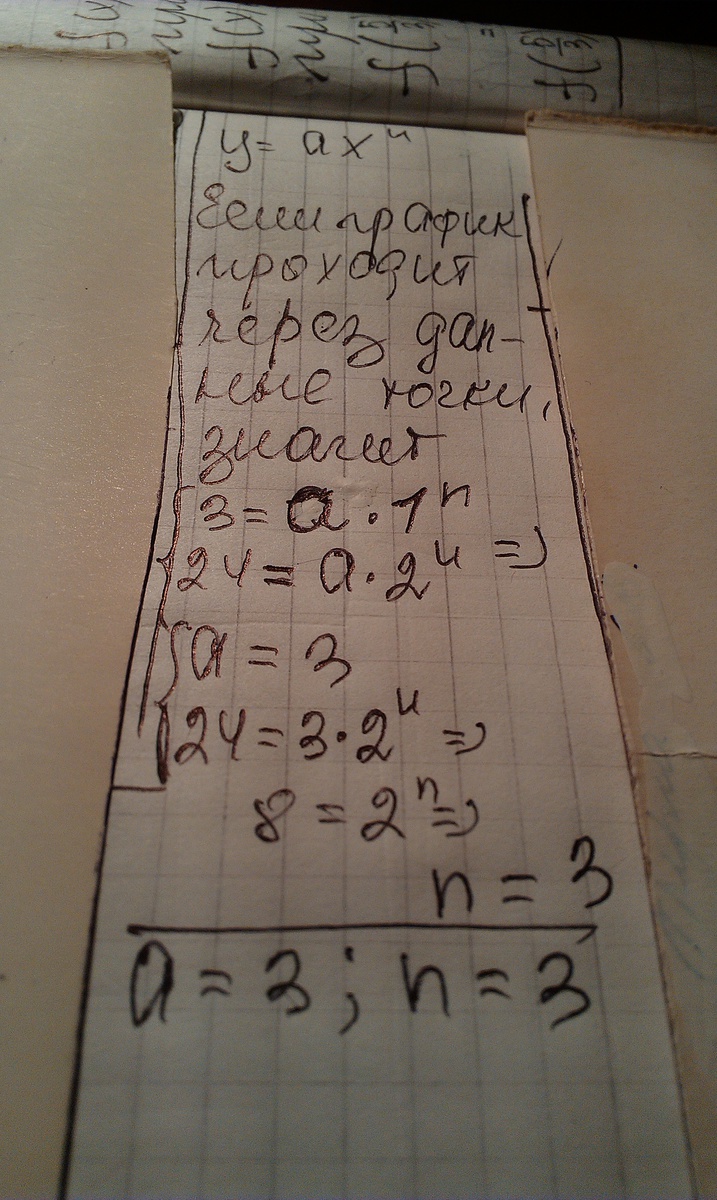 y = ax^n
Если график
проходит
через дан-
ные точки,
значит
{ 3 = a · 1^n
24 = a · 2^n =>
{ a = 3
24 = 3 · 2^n =>
8 = 2^n =>
n = 3
a = 3 ; n = 3